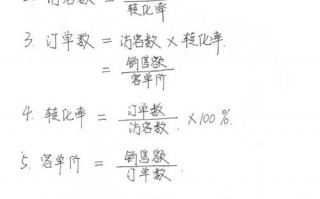 2. 访客数 = ——
转化率
3. 订单数 = 访客数 × 转化率.
= 销售额
客单价
4. 转化率 = 订单数 ×100%.
访客数
5. 客单价 = 销售额
订单数.